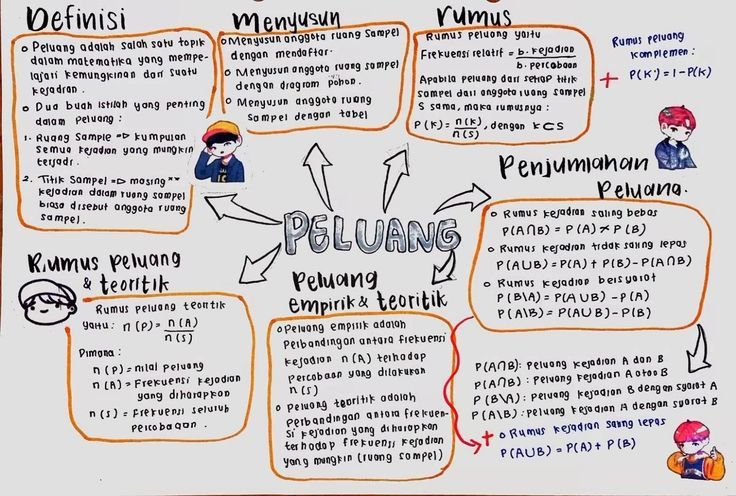 Definisi
o Peluang adalah salah satu topik
dalam matematika yang mempe-
lajari kemungkinan dari suatu
kejadian.
o Dua buah istilah yang penting
dalam peluang :
1. Ruang Sample => kumpulan
semua kejadian yang mungkin
terjadi.
2. Titik Sampel => masing"
kejadian dalam ruang sampel
biasa disebut anggota ruang
sampel.
Menyusun
o Menyusun anggota ruang sampel
dengan mendaftar.
o Menyusun anggota ruang sampel
dengan diagram pohon.
o Menyusun anggota ruang
sampel dengan tabel
rumus
Rumus peluang yaitu
Frekuensi relatif = b. kejadian
b. percobaan
Apabila peluang dari setiap titik
sampel dari anggota ruang sampel
S sama, maka rumusnya :
P(K) = n(K)
n(S) , dengan K⊂S
+ Rumus peluang
komplemen :
P(K') = 1 - P(K)
PELUANG
Penjumlahan
Peluang.
o Rumus kejadian saling bebas
P(A∩B) = P(A) × P(B)
o Rumus kejadian tidak saling lepas
P(A∪B) = P(A) + P(B) - P(A∩B)
o Rumus kejadian bersyarat
P(B\A) = P(A∪B) - P(A)
P(A\B) = P(A∪B) - P(B)
P(A∩B) : Peluang kejadian A dan B
P(A∩B) : Peluang kejadian A atau B
P(B\A) : Peluang kejadian B dengan syarat A
P(A\B) : Peluang kejadian A dengan syarat B
+ o Rumus kejadian saling lepas
P(A∪B) = P(A) + P(B)
Rumus peluang
& teoritik
Rumus peluang teoritik
yaitu : n(P) = n(A)
n(S)
Dimana :
n(P) = nilai peluang
n(A) = Frekuensi kejadian
yang diharapkan
n(S) = Frekuensi seluruh
percobaan.
Peluang
empirik & teoritik
o Peluang empirik adalah
Perbandingan antara frekuensi
kejadian n(A) terhadap
percobaan yang dilakukan
n(S)
o Peluang teoritik adalah
perbandingan antara frekuen-
si kejadian yang diharapkan
terhadap frekuensi kejadian
yang mungkin (ruang sampel)